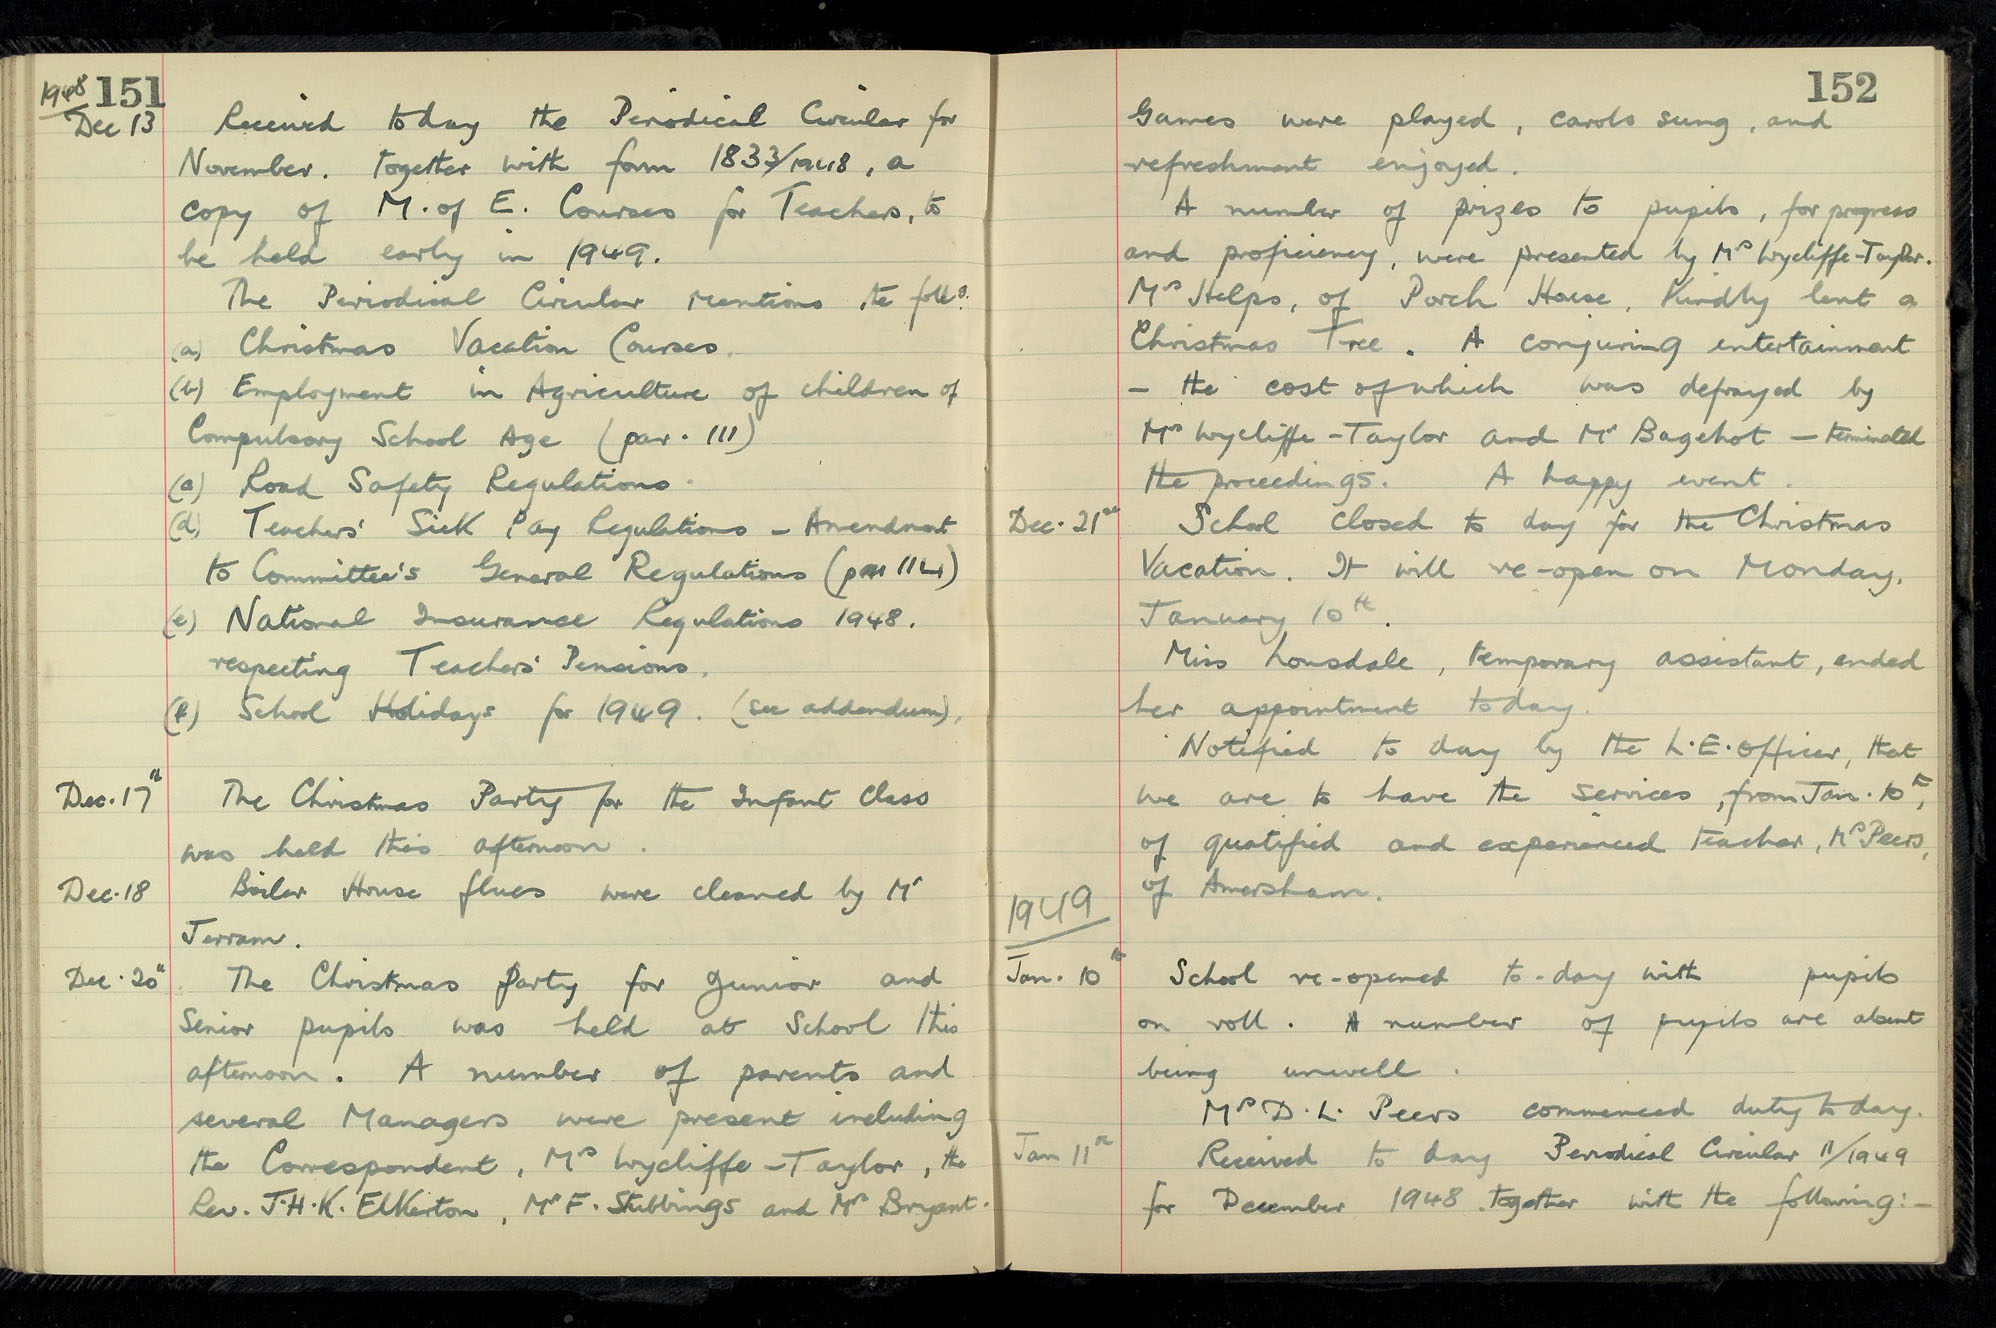 1948 151
Dec 13 Received today the Periodical Circular for
November. Together with form 1833/1948, a
copy of M. of E. Courses for Teachers, to
be held early in 1949.
The Periodical Circular mentions the folls.
(a) Christmas Vacation Courses.
(b) Employment in Agriculture of children of
Compulsory School Age (par. 111)
(c) Road Safety Regulations.
(d) Teachers' Sick Pay Regulations – Amendment
to Committee's General Regulations (par 114)
(e) National Insurance Regulations 1948.
respecting Teachers' Pensions.
(f) School Holidays for 1949. (see addendum).
Dec. 17th The Christmas Party for the Infant Class
was held this afternoon.
Dec. 18 Boiler House flues were cleaned by Mr
Jerram.
Dec. 20th The Christmas Party for Junior and
Senior pupils was held at School this
afternoon. A number of parents and
several Managers were present including
the Correspondent, Mrs Wycliffe-Taylor, the
Rev. J.H.K. Elkerton, Mr F. Stubbings and Mrs Bryant.
152
Games were played, carols sung, and
refreshment enjoyed.
A number of prizes to pupils, for progress
and proficiency, were presented by Mrs Wycliffe-Taylor.
Mrs Helps, of Porch House, kindly lent a
Christmas Tree. A conjuring entertainment
– the cost of which was defrayed by
Mrs Wycliffe-Taylor and Mr Bagehot – terminated
the proceedings. A happy event.
Dec. 21st School closed to day for the Christmas
Vacation. It will re-open on Monday,
January 10th.
Miss Lonsdale, temporary assistant, ended
her appointment today.
Notified to day by the L.E. Officer, that
we are to have the services, from Jan. 10th,
of qualified and experienced teacher, Mrs Peers,
of Amersham.
1949
Jan. 10th School re-opened to-day with pupils
on roll. A number of pupils are absent
being unwell.
Mrs D. L. Peers commenced duty to day.
Jan 11th Received to day Periodical Circular 11/1949
for December 1948 together with the following:–